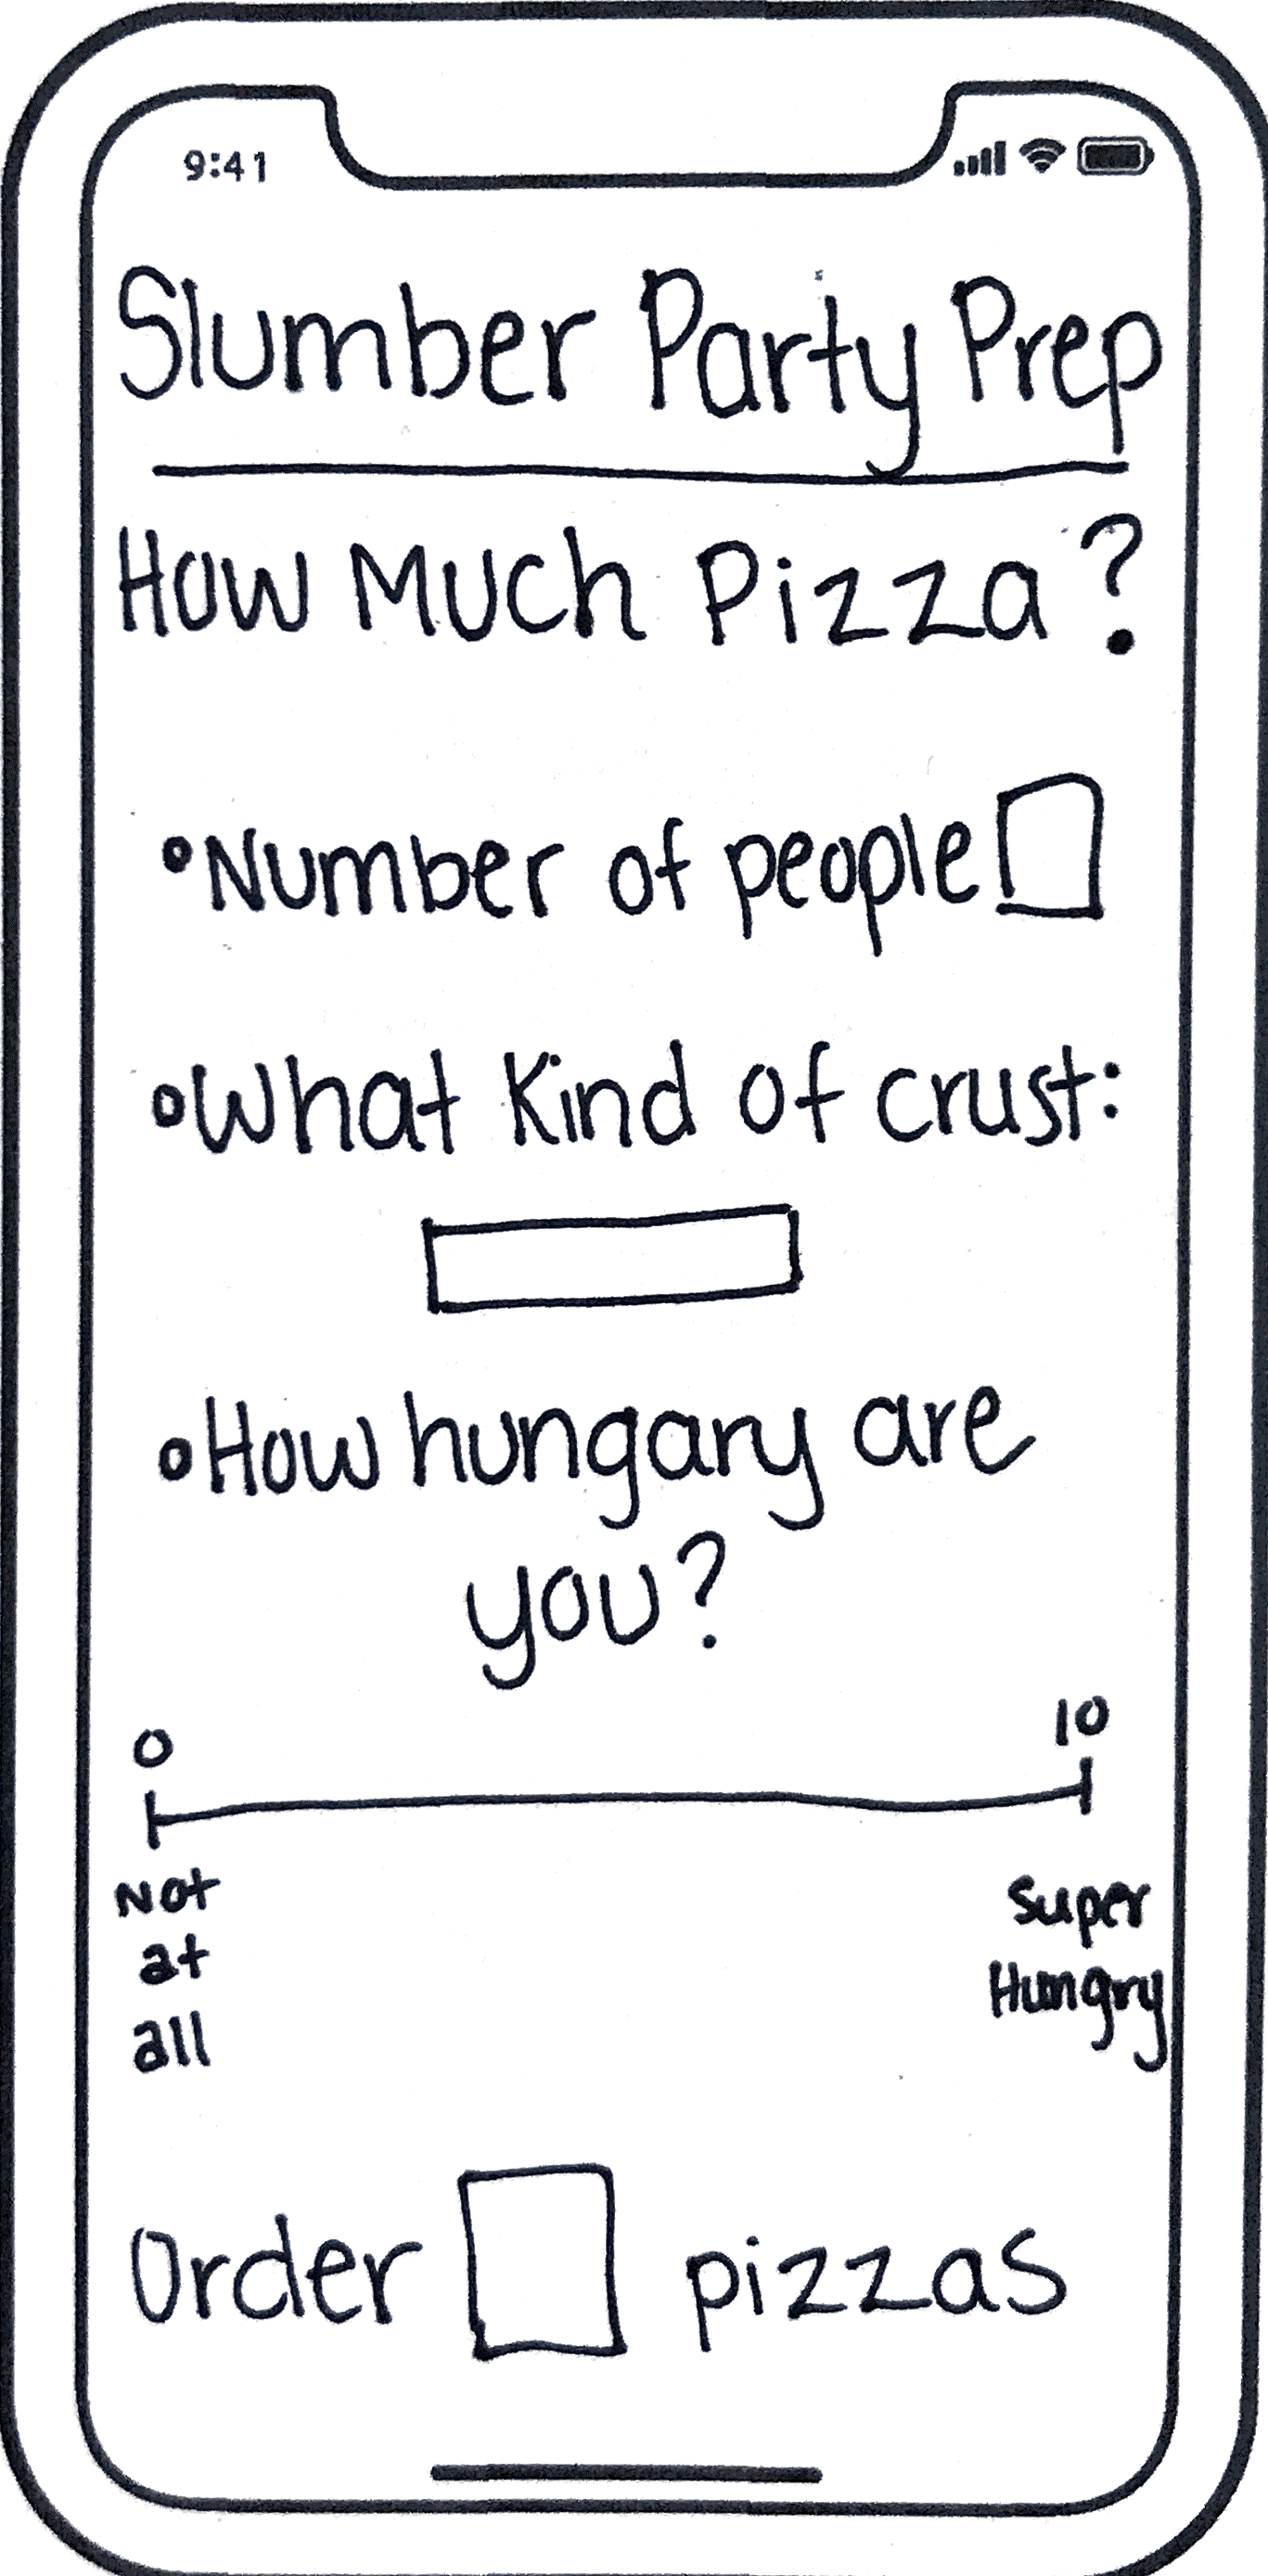 9:41
Slumber Party Prep
How Much Pizza?
Number of people
What Kind of crust:
How hungary are
you?
0 10
Not
at
all
Super
Hungry
Order pizzas